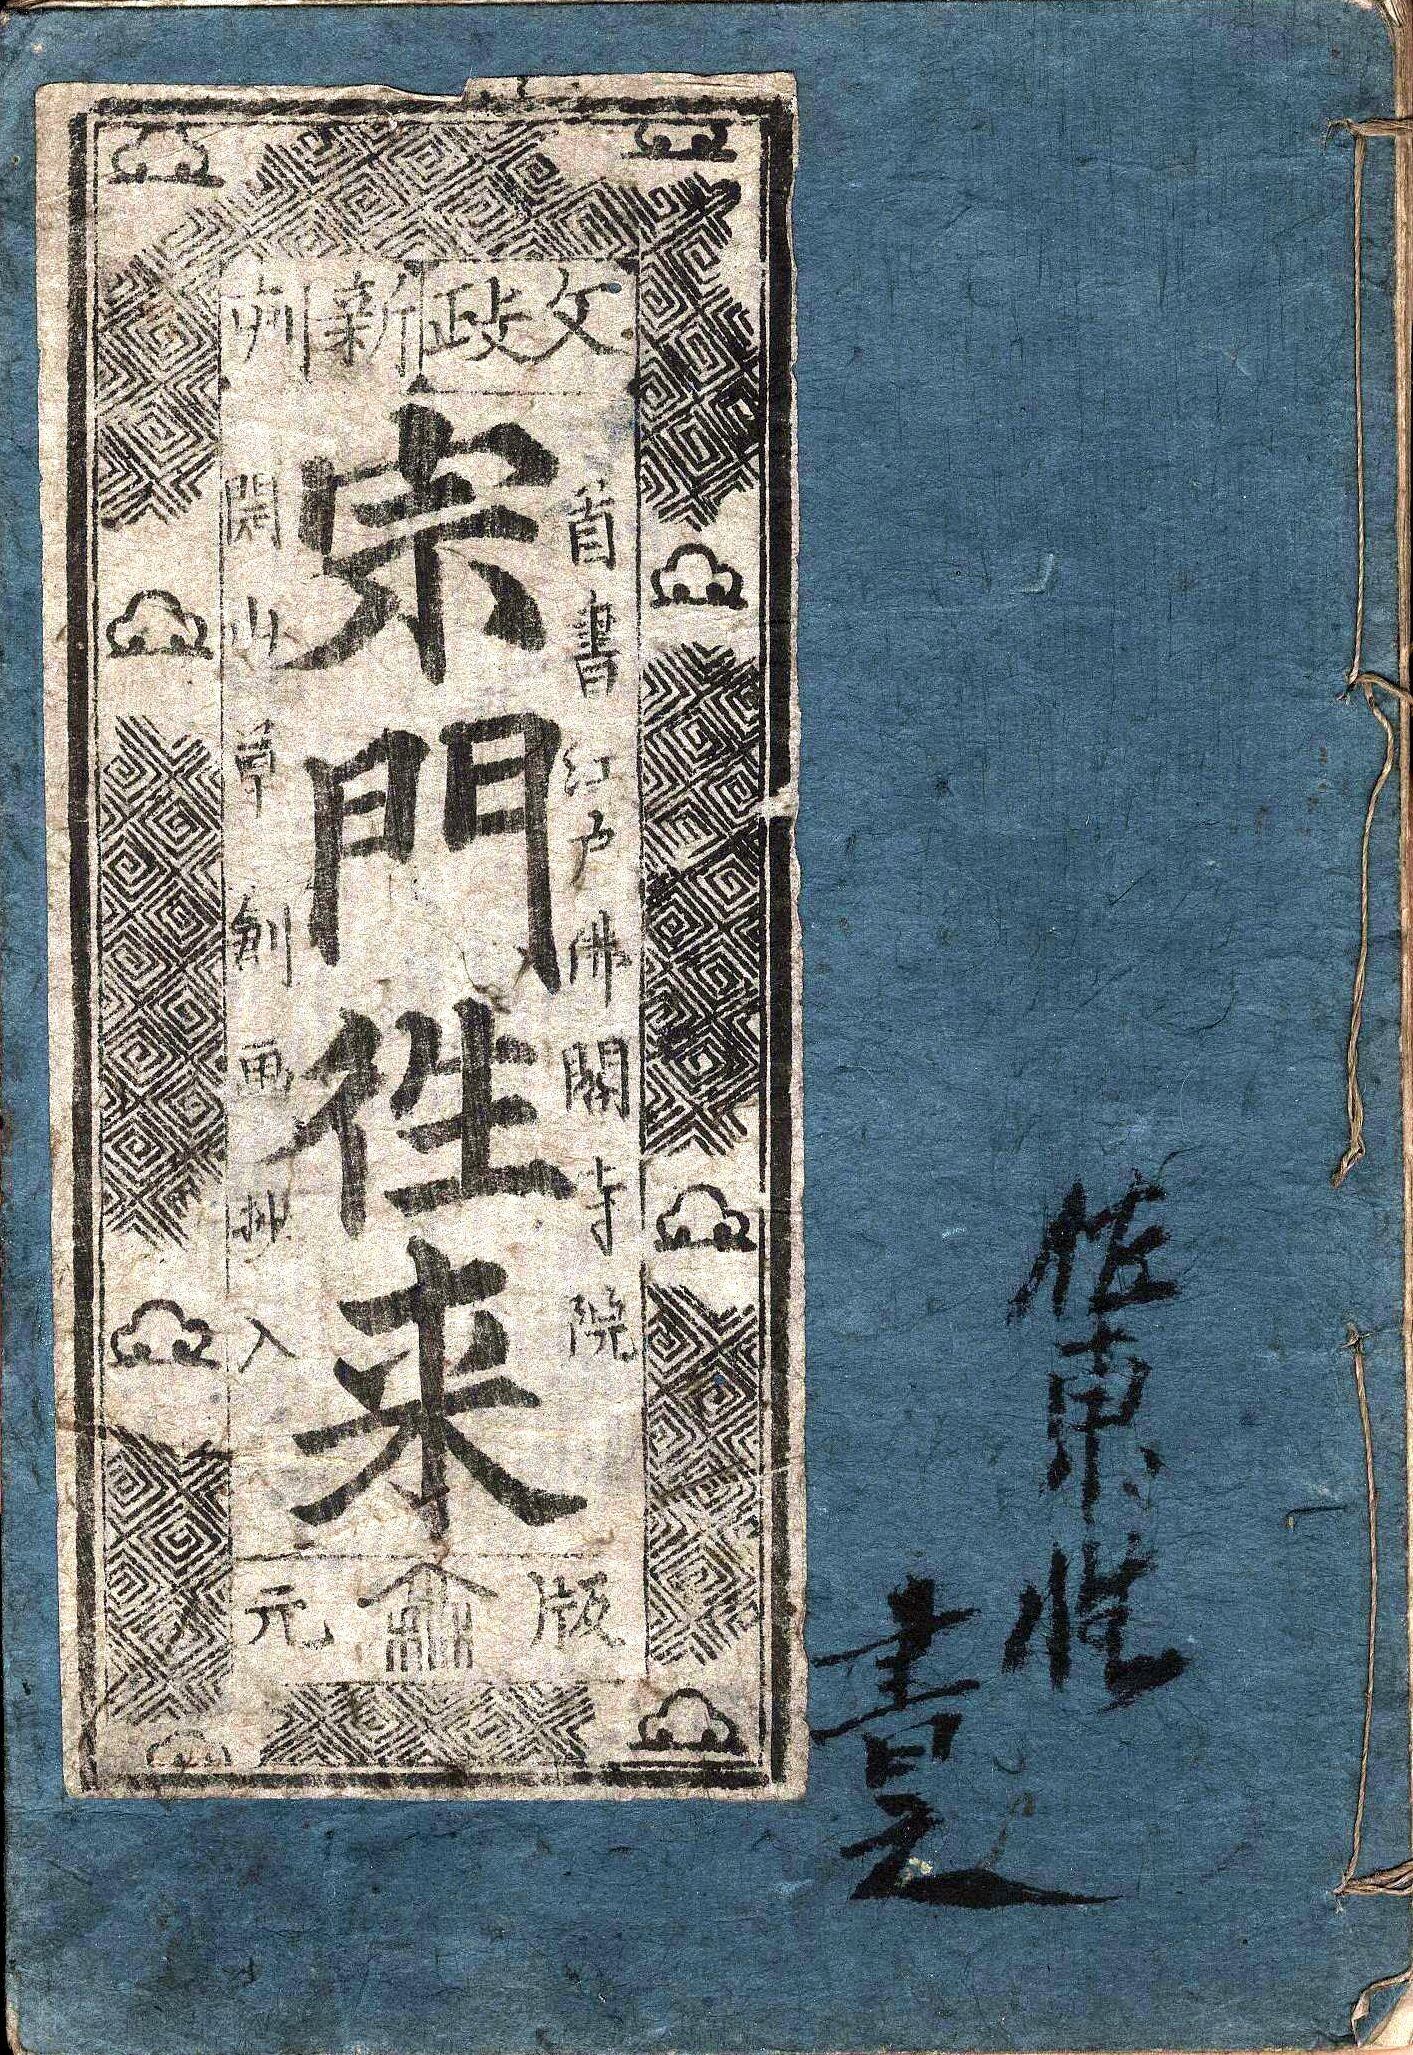 文政新刻
首書 江戸佛閣寺院
宗門往来
開山草創画抄入
版元
書之